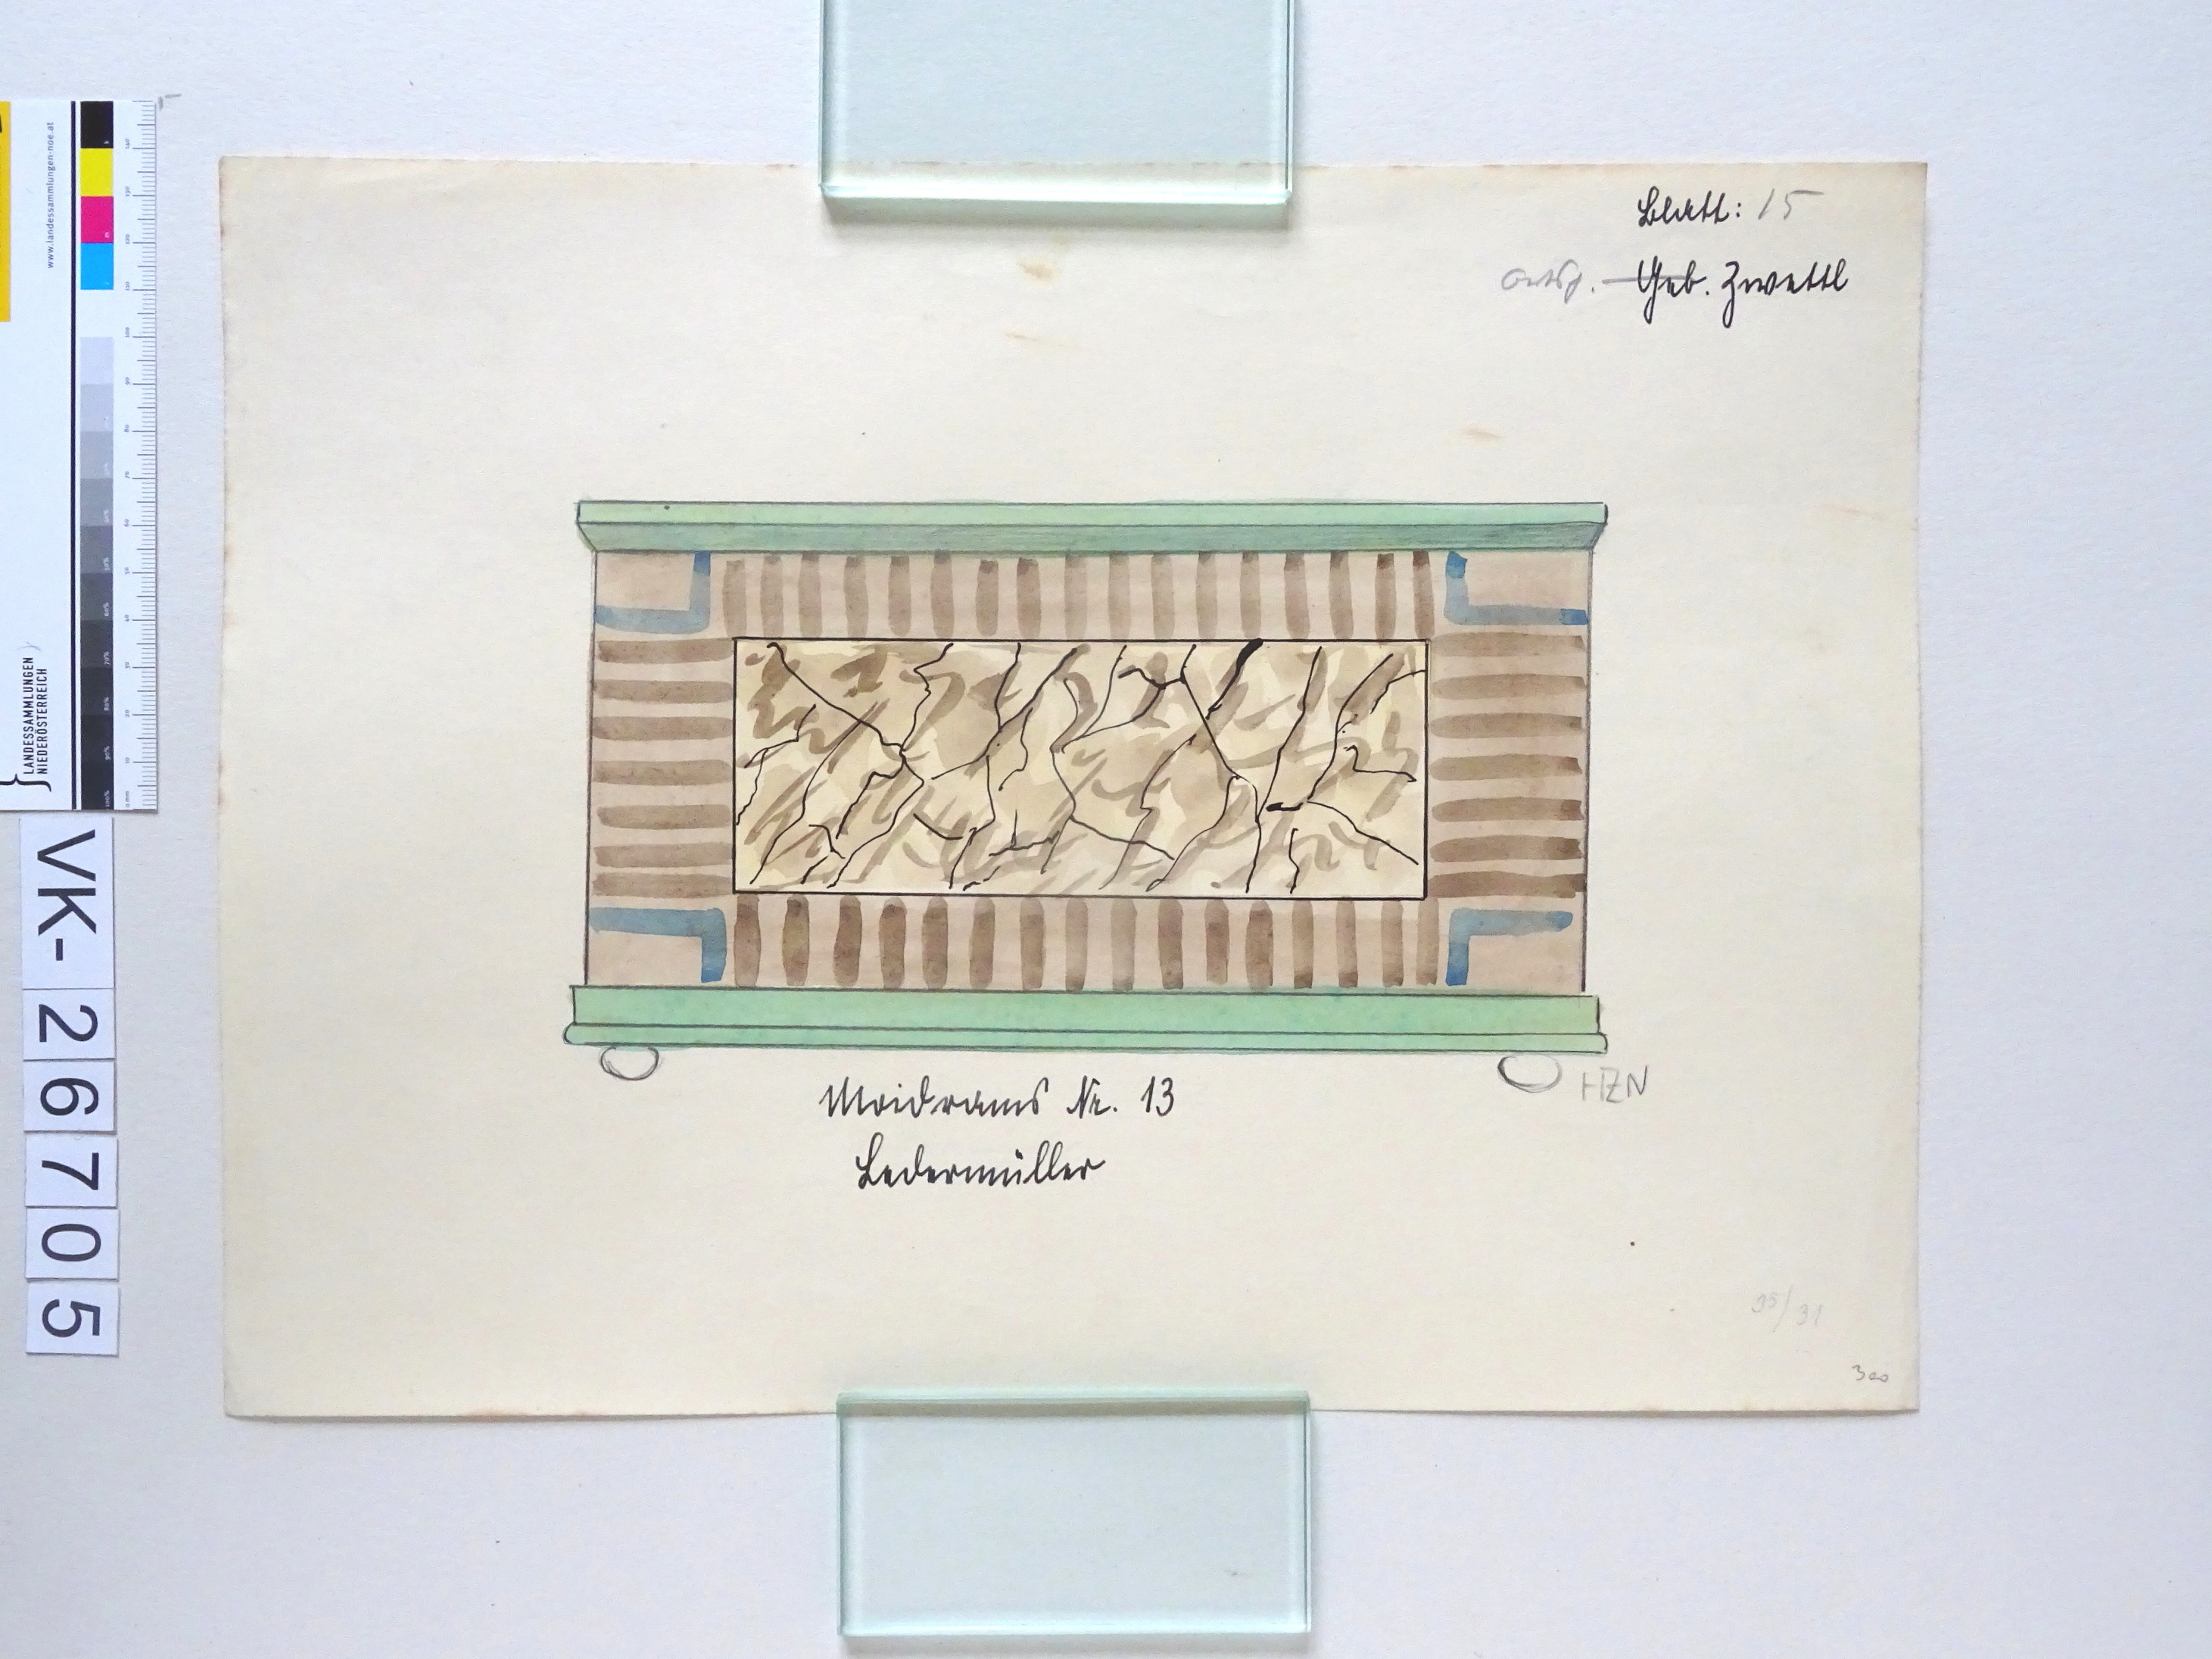 Blatt: 15
Geb. Zwettl
Moidrams Nr. 13
Ledermüller
HZN
35/31
300
www.landessammlungen-noe.at
LANDESSAMMLUNGEN
NIEDERÖSTERREICH
VK-26705